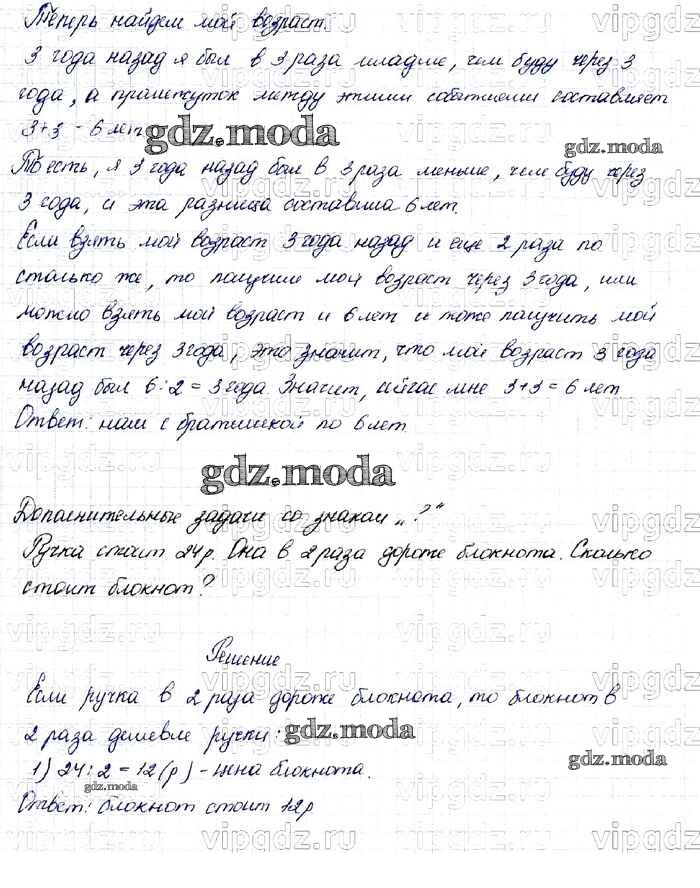 Теперь найдем мой возраст.
3 года назад я был в 3 раза младше, чем буду через 3
года, а промежуток между этими событиями составляет
3+3 = 6 лет.
gdz.moda
gdz.moda
То есть, я 3 года назад был в 3 раза меньше, чем буду через
3 года, и эта разница составила 6 лет.
Если взять мой возраст 3 года назад и еще 2 раза по
столько же, то получим мой возраст через 3 года, или
можно взять мой возраст и 6 лет и тоже получить мой
возраст через 3 года, это значит, что мой возраст 3 года
назад был 6:2 = 3 года. Значит, сейчас мне 3+3 = 6 лет
Ответ: нам с братишкой по 6 лет
gdz.moda
Дополнительные задачи со знаком „?“
Ручка стоит 24р. Она в 2 раза дороже блокнота. Сколько
стоит блокнот?
Решение
Если ручка в 2 раза дороже блокнота, то блокнот в
2 раза дешевле ручки:
gdz.moda
1) 24:2 = 12 (р) - цена блокнота.
gdz.moda
gdz.moda
Ответ: блокнот стоит 12р
vipgdz.ru